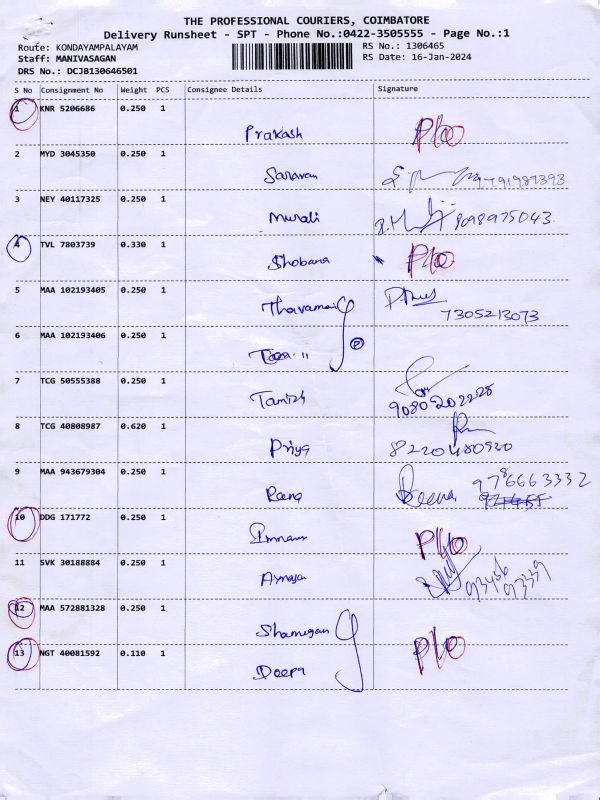 THE PROFESSIONAL COURIERS, COIMBATORE
Delivery Runsheet - SPT - Phone No.:0422-3505555 - Page No.:1
Route: KONDAYAMPALAYAM RS No.: 1306465
Staff: MANIVASAGAN RS Date: 16-Jan-2024
DRS No.: DCJB130646501
S No Consignment No Weight PCS Consignee Details Signature
1 KNR 5206686 0.250 1
Prakash P/o
2 MYD 3045350 0.250 1
Saravan
3 NEY 40117325 0.250 1
Murali 8098975043
4 TVL 7803739 0.330 1
Shobana P/o
5 MAA 102193405 0.250 1
7305213073
6 MAA 102193406 0.250 1
7 TCG 50555388 0.250 1
Tamizh
8 TCG 40808987 0.620 1
Priya 8220480930
9 MAA 943679304 0.250 1
9786663332
10 DDG 171772 0.250 1
P/o
11 SVK 30188884 0.250 1
12 MAA 572881328 0.250 1
13 NGT 40081592 0.110 1
P/o
Deepa